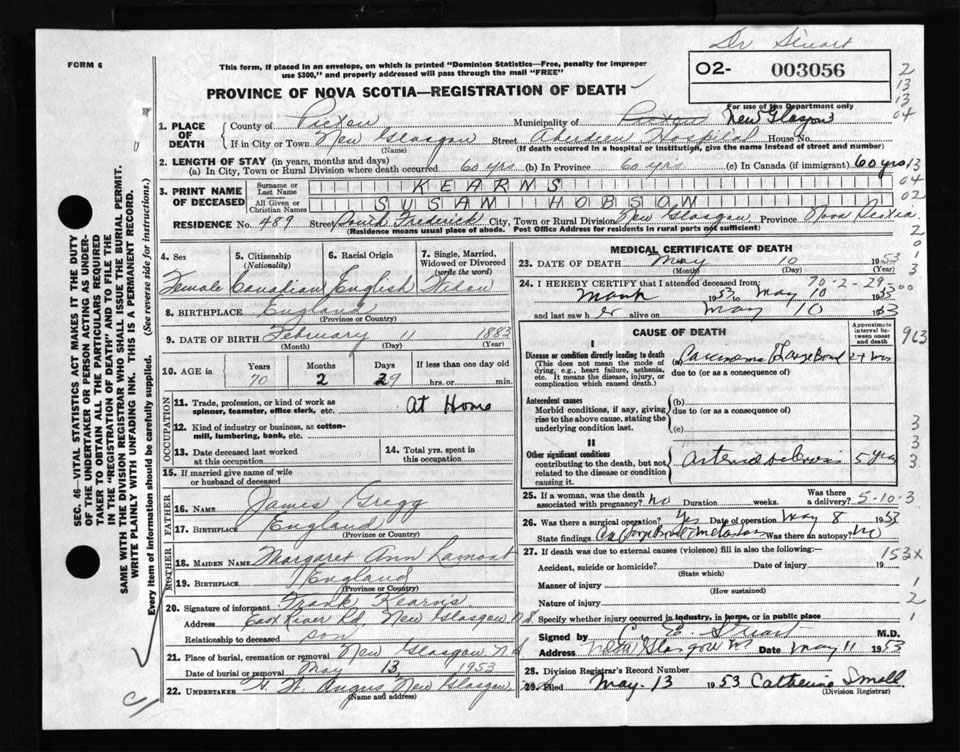 Dr. Stuart
FORM 6
This form, if placed in an envelope, on which is printed "Dominion Statistics—Free, penalty for improper
use $300," and properly addressed will pass through the mail "FREE"
02- 003056
2
13
13
04
PROVINCE OF NOVA SCOTIA—REGISTRATION OF DEATH
For use of the Department only
1. PLACE OF DEATH
County of Pictou Municipality of Pictou New Glasgow
If in City or Town New Glasgow Street Aberdeen Hospital House No.
(Name) (If death occurred in a hospital or institution, give name instead of street and number)
2. LENGTH OF STAY (in years, months and days)
(a) In City, Town or Rural Division where death occurred 60 yrs (b) In Province 60 yrs (c) In Canada (if immigrant) 60 yrs 13
3. PRINT NAME OF DECEASED
Surname or Last Name KEARNS 04
All Given or Christian Names SUSAN HOBSON 02
RESIDENCE No. 489 Street South Frederick City, Town or Rural Division New Glasgow Province Nova Scotia
(Residence means usual place of abode. Post Office Address for residents in rural parts not sufficient)
2
0
1
3
4. Sex 5. Citizenship (Nationality) 6. Racial Origin 7. Single, Married, Widowed or Divorced (write the word)
Female Canadian English Widow
8. BIRTHPLACE England
(Province or Country)
9. DATE OF BIRTH February 11 1883
(Month) (Day) (Year)
10. AGE in Years Months Days If less than one day old
70 2 29 hrs. or min.
OCCUPATION
11. Trade, profession, or kind of work as spinner, teamster, office clerk, etc. At Home
12. Kind of industry or business, as cotton-mill, lumbering, bank, etc.
13. Date deceased last worked at this occupation
14. Total yrs. spent in this occupation
15. If married give name of wife or husband of deceased
FATHER
16. NAME James Gregg
17. BIRTHPLACE England
(Province or Country)
MOTHER
18. MAIDEN NAME Margaret Ann Lamont
19. BIRTHPLACE England
(Province or Country)
20. Signature of informant Frank Kearns
Address East River Rd, New Glasgow N.S.
Relationship to deceased son
21. Place of burial, cremation or removal New Glasgow N.S.
Date of burial or removal May 13, 1953
22. UNDERTAKER H. W. Angus, New Glasgow
(Name and address)
MEDICAL CERTIFICATE OF DEATH
23. DATE OF DEATH May 10 1953
(Month) (Day) (Year)
24. I HEREBY CERTIFY that I attended deceased from: 70-2-29 00
1953 to May 10 1953
and last saw her alive on May 10 1953
CAUSE OF DEATH
Approximate interval between onset and death
913
I
Disease or condition directly leading to death
(This does not mean the mode of dying, e.g., heart failure, asthenia, etc. It means the disease, injury, or complication which caused death.)
Carcinoma Large Bowel 2+ yrs
due to (or as a consequence of)
Antecedent causes
Morbid conditions, if any, giving rise to the above cause, stating the underlying condition last.
(b)
due to (or as a consequence of)
(c)
II
Other significant conditions
contributing to the death, but not related to the disease or condition causing it.
Arteriosclerosis 5 yrs
3
3
3
25. If a woman, was the death associated with pregnancy? no Duration weeks. Was there a delivery? 5-10-3
26. Was there a surgical operation? Yes Date of operation May 8 1953
State findings Ca large Bowel metastases Was there an autopsy? no
27. If death was due to external causes (violence) fill in also the following:— 153x
Accident, suicide or homicide? Date of injury 19
(State which)
Manner of injury
(How sustained)
1
Nature of injury
2
Specify whether injury occurred in industry, in home, or in public place
Signed by C. E. Stuart M.D.
Address New Glasgow NS Date May 11 1953
28. Division Registrar's Record Number
29. Filed May 13 1953 Catherine Small
(Division Registrar)
SEC. 46—VITAL STATISTICS ACT MAKES IT THE DUTY
OF THE UNDERTAKER OR PERSON ACTING AS UNDER-
TAKER TO OBTAIN ALL THE PARTICULARS REQUIRED
IN THE "REGISTRATION OF DEATH" AND TO FILE THE
SAME WITH THE DIVISION REGISTRAR WHO SHALL ISSUE THE BURIAL PERMIT.
WRITE PLAINLY WITH UNFADING INK. THIS IS A PERMANENT RECORD.
Every item of information should be carefully supplied. (See reverse side for instructions.)